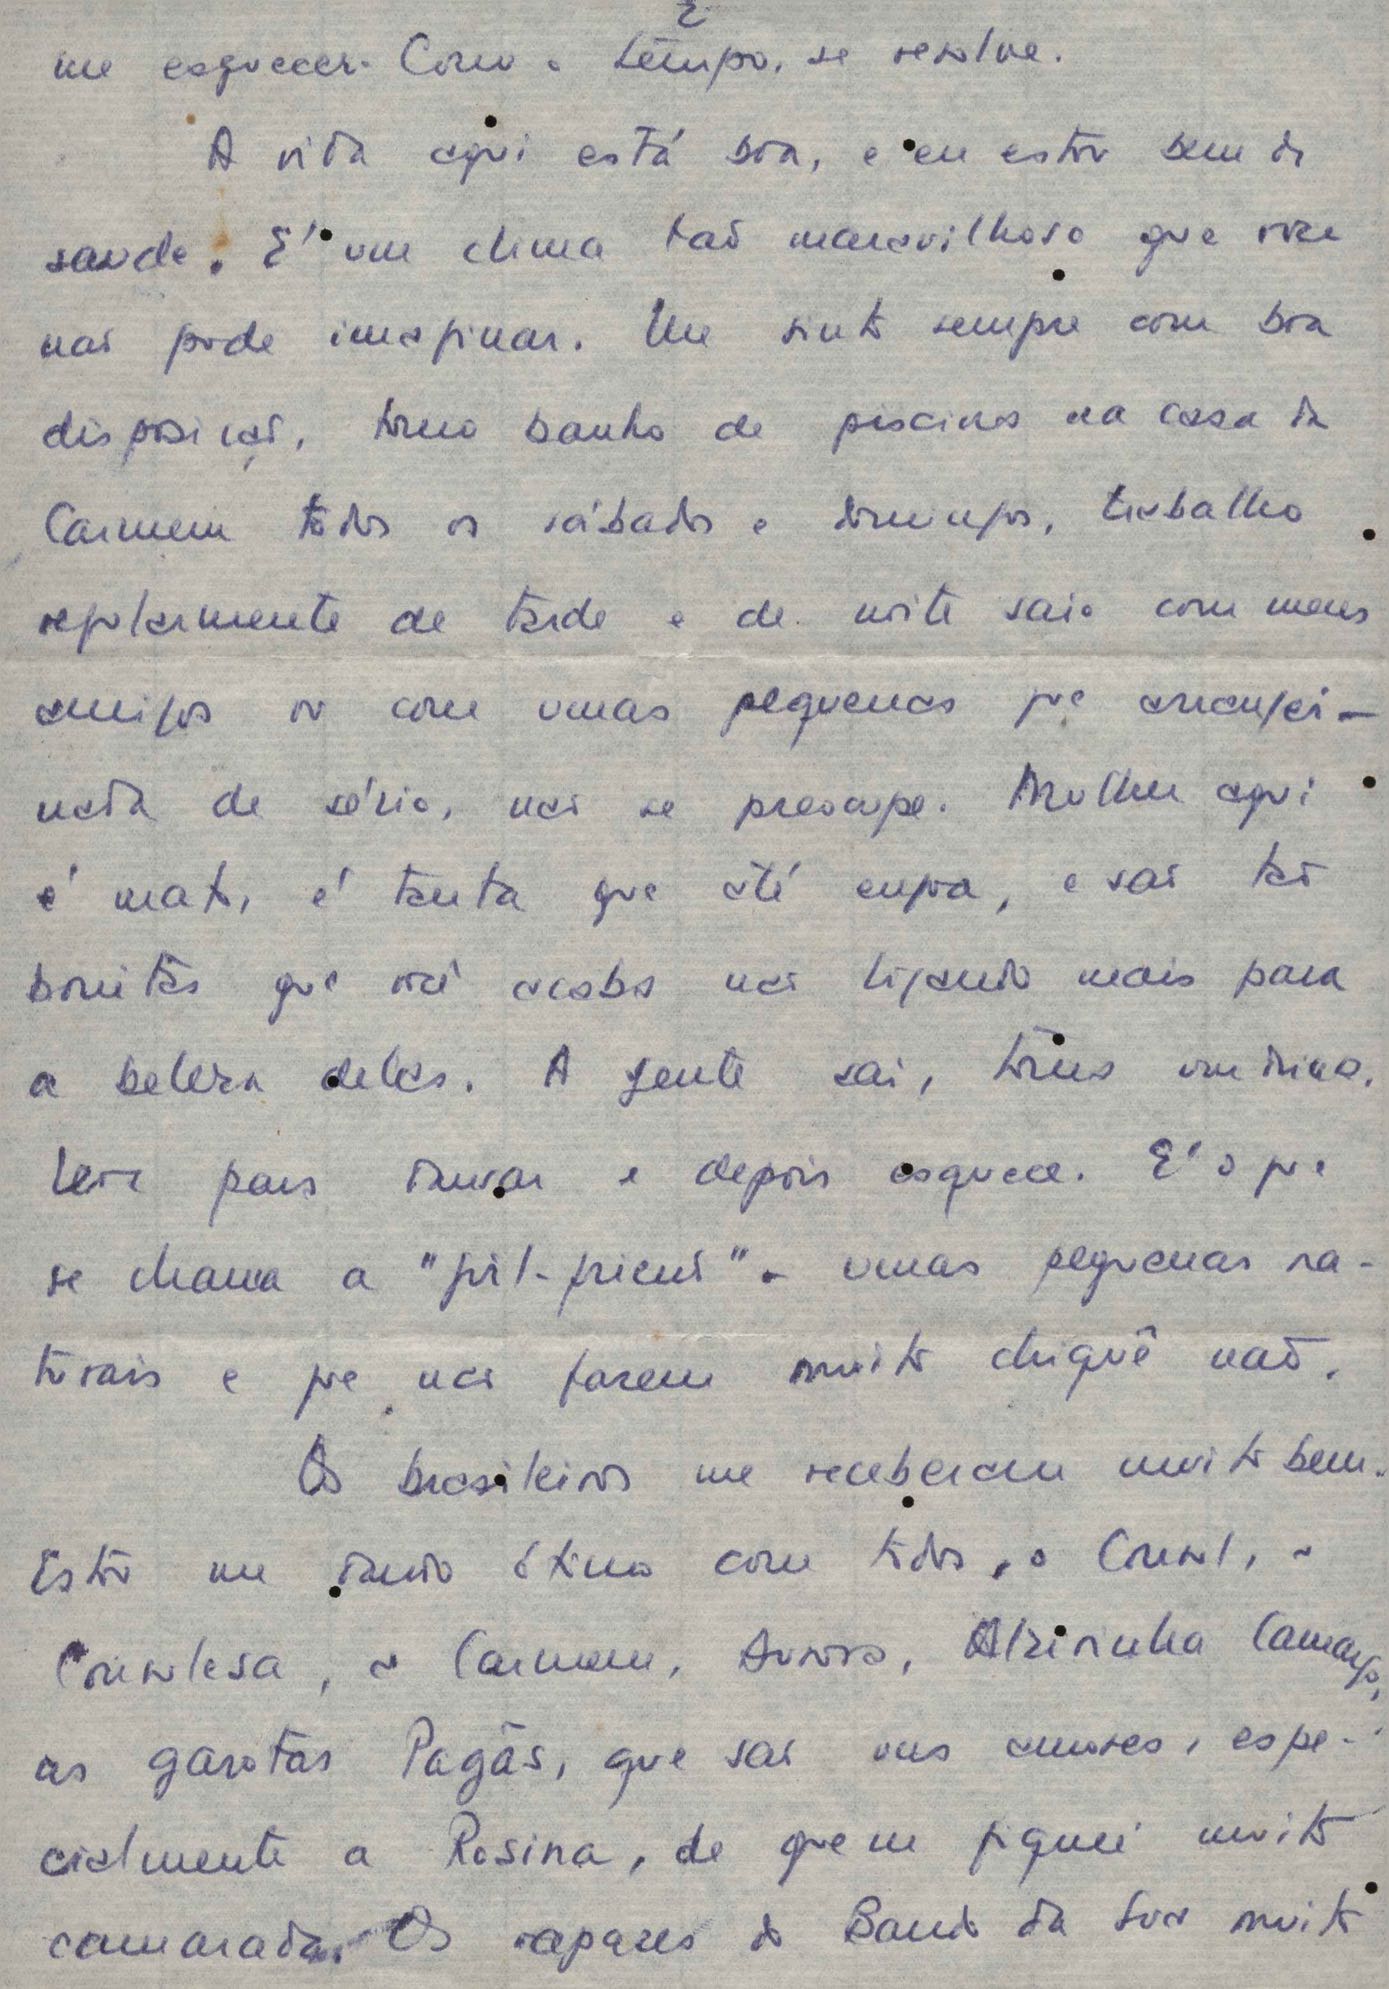 2
me esquecer. Com o tempo, se resolve.
A vida aqui está boa, e eu estou bem de
saude. E' um clima tão maravilhoso que você
não pode imaginar. Me sinto sempre com boa
disposição, tomo banho de piscina na casa da
Carmem todos os sábados e domingos, trabalho
regularmente de tarde e de noite saio com meus
amigos ou com umas pequenas que arranjei —
nada de sério, não se preocupe. Mulher aqui
é mato, é tanta que até enjoa, e são tão
bonitas que você acaba não ligando mais para
a beleza delas. A gente sai, toma um drink,
leva para dansar e depois esquece. E' o que
se chama a "girl-friend" - umas pequenas na-
turais e que não fazem muito chiquê não.
Os brasileiros me receberam muito bem.
Estou me dando ótimo com todos, o Consul, a
Consulesa, a Carmem, Aurora, Alzirinha Camargo,
as garotas Pagãs, que são uns amores, espe-
cialmente a Rosina, de quem fiquei muito
camarada. Os rapazes do Bando da Lua muito